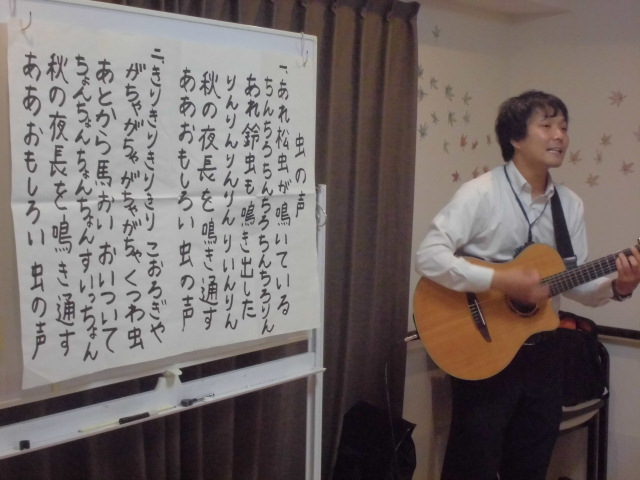 虫の声
一、あれ松虫が鳴いている
ちんちろちんちろちんちろりん
あれ鈴虫も鳴き出した
りんりんりんりん りいんりん
秋の夜長を鳴き通す
ああおもしろい 虫の声
二、きりきりきりきり こおろぎや
がちゃがちゃがちゃがちゃ くつわ虫
あとから馬おい おいついて
ちょんちょんちょんちょんすいっちょん
秋の夜長を鳴き通す
ああおもしろい 虫の声